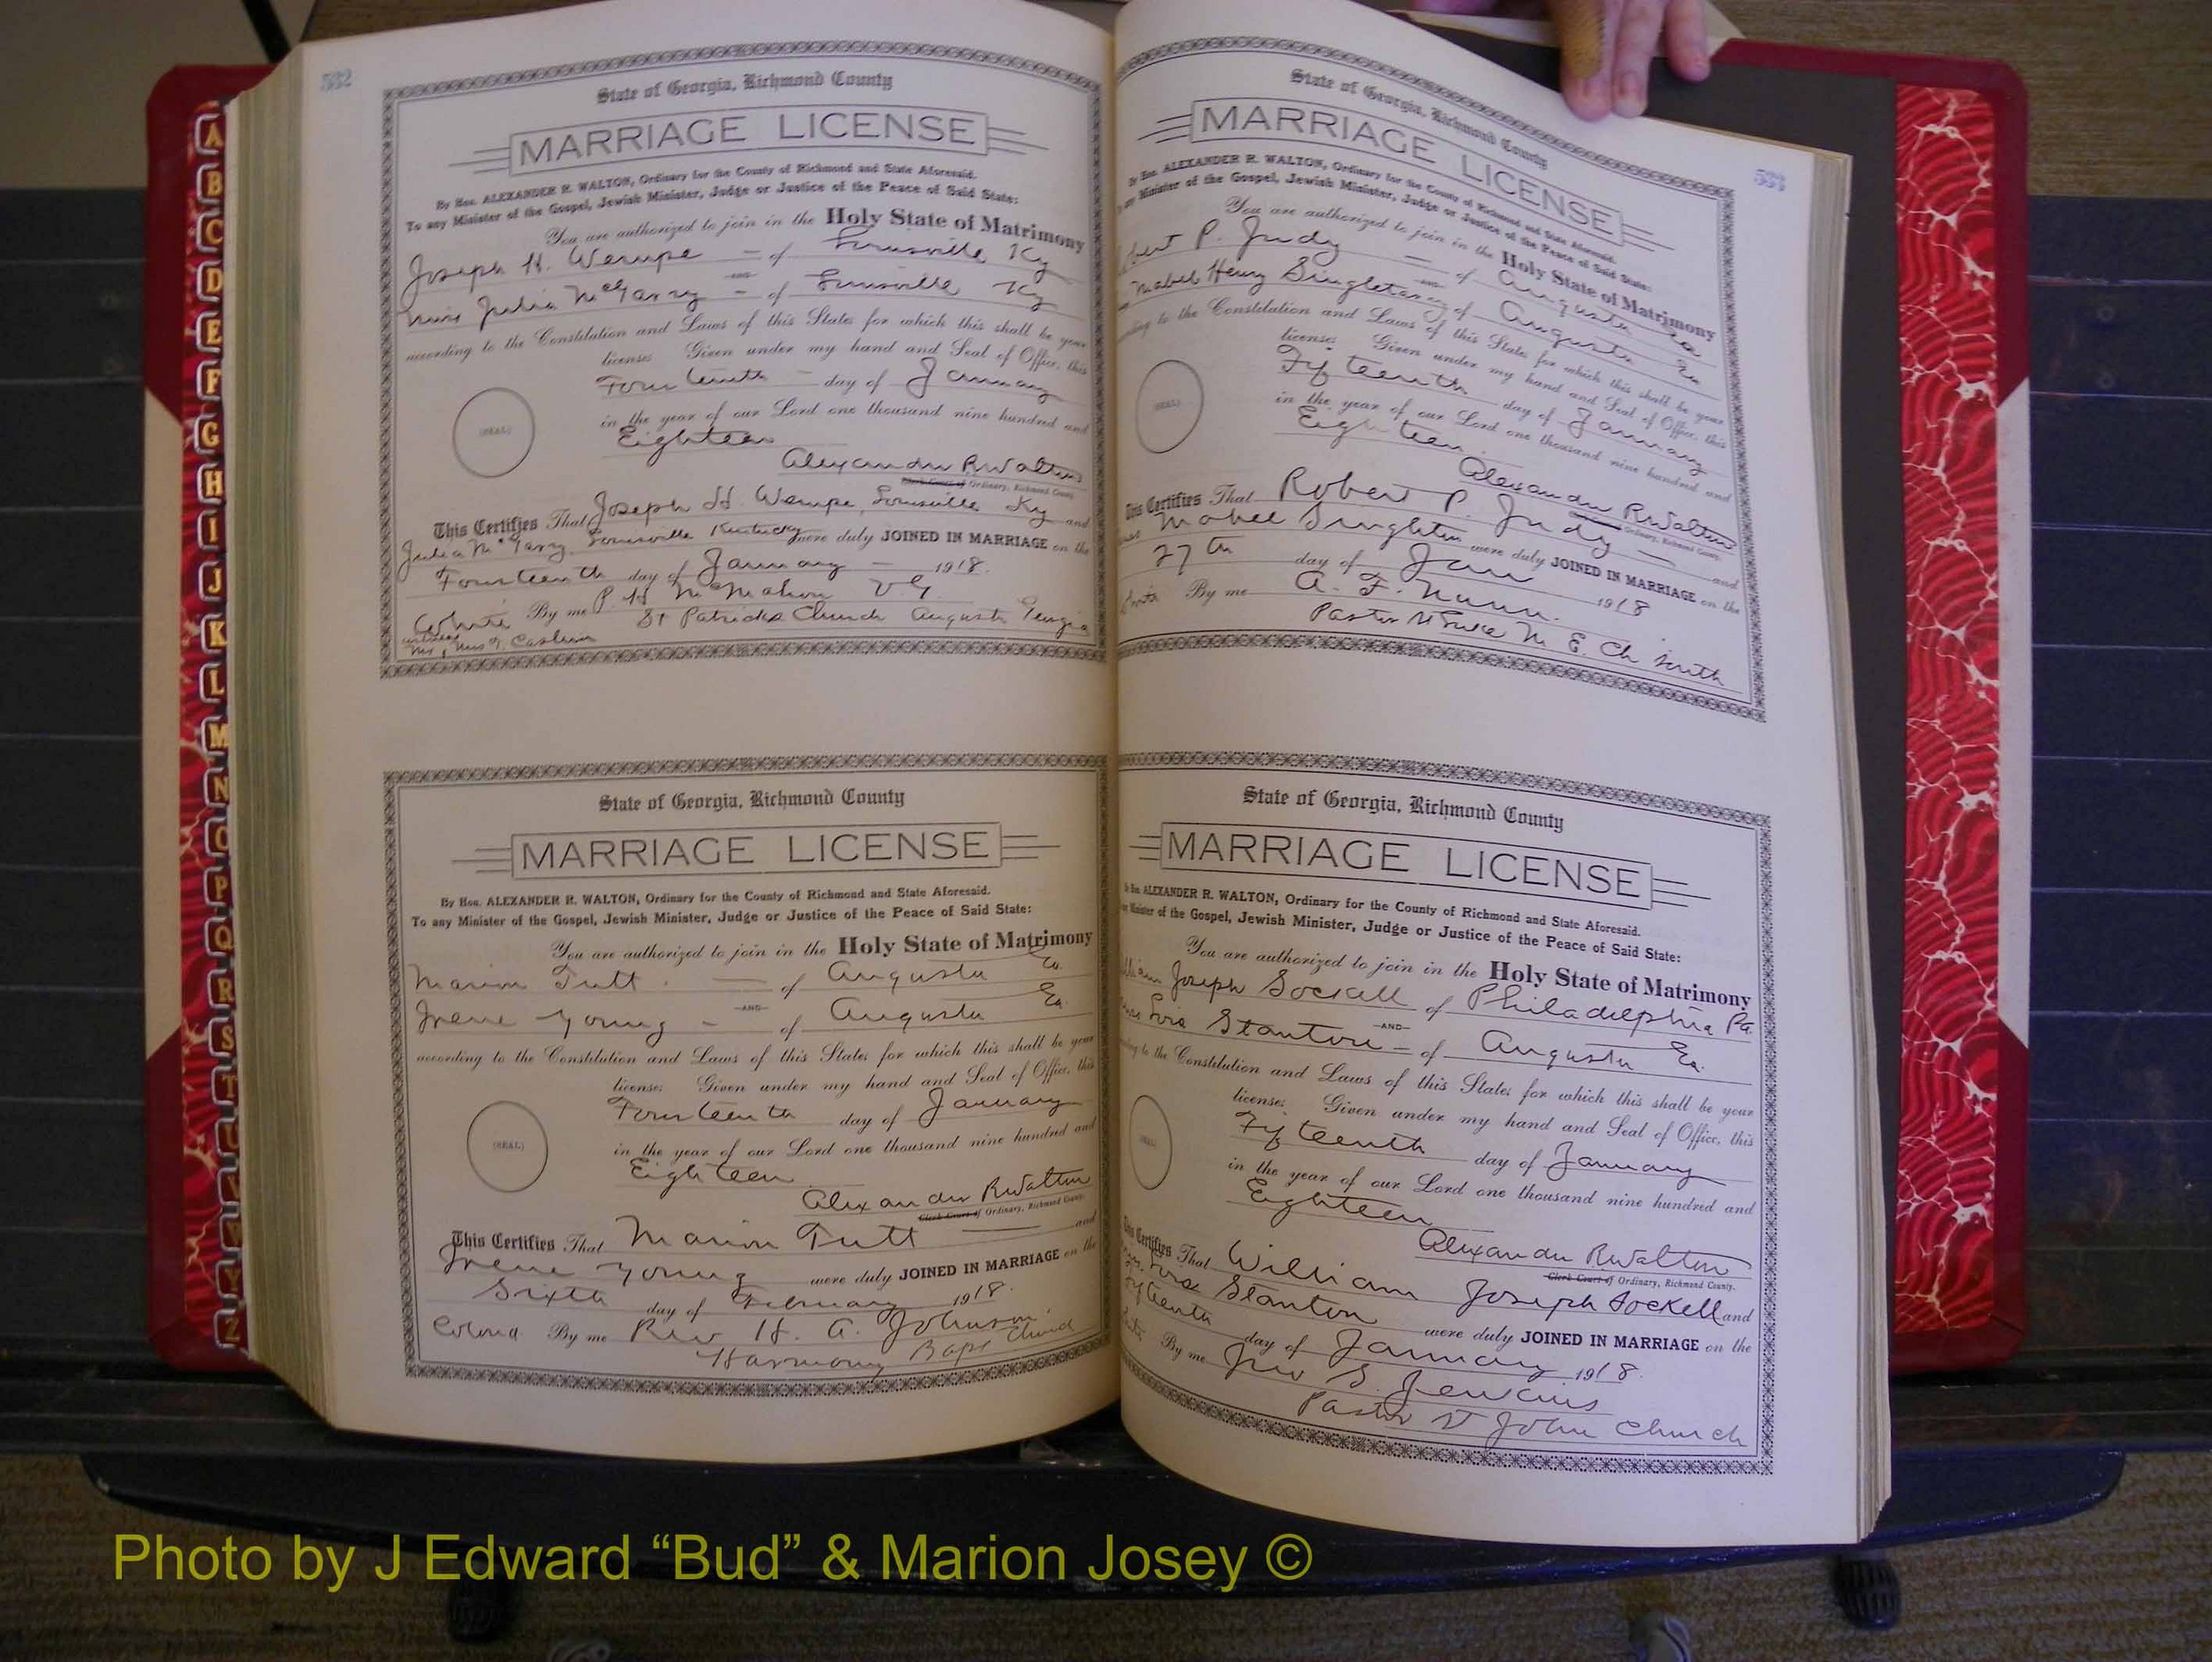 532
State of Georgia, Richmond County
MARRIAGE LICENSE
By Hon. ALEXANDER R. WALTON, Ordinary for the County of Richmond and State Aforesaid.
To any Minister of the Gospel, Jewish Minister, Judge or Justice of the Peace of Said State:
You are authorized to join in the Holy State of Matrimony
Joseph H. Wempe — of Louisville Ky
AND
Miss Julia — of Louisville Ky
according to the Constitution and Laws of this State; for which this shall be your
license; Given under my hand and Seal of Office, this
Fourteenth — day of January
in the year of our Lord one thousand nine hundred and
Eighteen
(SEAL)
Alexander R Walton
Clerk Court of Ordinary, Richmond County.
This Certifies That Joseph H. Wempe, Louisville Ky and
Julia Louisville Kentucky were duly JOINED IN MARRIAGE on the
Fourteenth day of January — 1918.
White By me P. H McMahon V. G.
St Patricks Church Augusta Georgia
witnesses
Mr, Mrs
State of Georgia, Richmond County
MARRIAGE LICENSE
By Hon. ALEXANDER R. WALTON, Ordinary for the County of Richmond and State Aforesaid.
To any Minister of the Gospel, Jewish Minister, Judge or Justice of the Peace of Said State:
You are authorized to join in the Holy State of Matrimony
Marion Tutt — of Augusta Ga.
AND
Irene Young — of Augusta Ga.
according to the Constitution and Laws of this State; for which this shall be your
license; Given under my hand and Seal of Office, this
Fourteenth day of January
in the year of our Lord one thousand nine hundred and
Eighteen
(SEAL)
Alexander R Walton
Clerk Court of Ordinary, Richmond County.
This Certifies That Marion Tutt — and
Irene Young were duly JOINED IN MARRIAGE on the
Sixth day of February 1918.
Colored By me Rev H. A. Johnson
Harmony Bapt Church
533
State of Georgia, Richmond County
MARRIAGE LICENSE
By Hon. ALEXANDER R. WALTON, Ordinary for the County of Richmond and State Aforesaid.
any Minister of the Gospel, Jewish Minister, Judge or Justice of the Peace of Said State:
You are authorized to join in the Holy State of Matrimony
bert P. Judy — of Augusta Ga
AND
Mabel Henry Singletary of Augusta Ga
ording to the Constitution and Laws of this State; for which this shall be your
license; Given under my hand and Seal of Office, this
Fifteenth day of January
in the year of our Lord one thousand nine hundred and
Eighteen
(SEAL)
Alexander R Walton
Clerk Court of Ordinary, Richmond County.
This Certifies That Robert P Judy — and
Mabel were duly JOINED IN MARRIAGE on the
27th day of Jan 1918
White By me A. F. Nunn.
Pastor St Luke M. E. Ch South
State of Georgia, Richmond County
MARRIAGE LICENSE
By Hon. ALEXANDER R. WALTON, Ordinary for the County of Richmond and State Aforesaid.
any Minister of the Gospel, Jewish Minister, Judge or Justice of the Peace of Said State:
You are authorized to join in the Holy State of Matrimony
lliam Joseph Sockell of Philadelphia Pa.
AND
Lois Stanton — of Augusta Ga.
ording to the Constitution and Laws of this State; for which this shall be your
license; Given under my hand and Seal of Office, this
Fifteenth day of January
in the year of our Lord one thousand nine hundred and
Eighteen
(SEAL)
Alexander R Walton
Clerk Court of Ordinary, Richmond County.
This Certifies That William Joseph Sockell and
Lois Stanton were duly JOINED IN MARRIAGE on the
Fifteenth day of January 1918.
White By me Jno S. Jenkins
Pastor St John Church
A
B
C
D
E
F
G
H
I
J
K
L
M
N
O
P
Q
R
S
T
U
V
W
Y
Z
Photo by J Edward “Bud” & Marion Josey ©